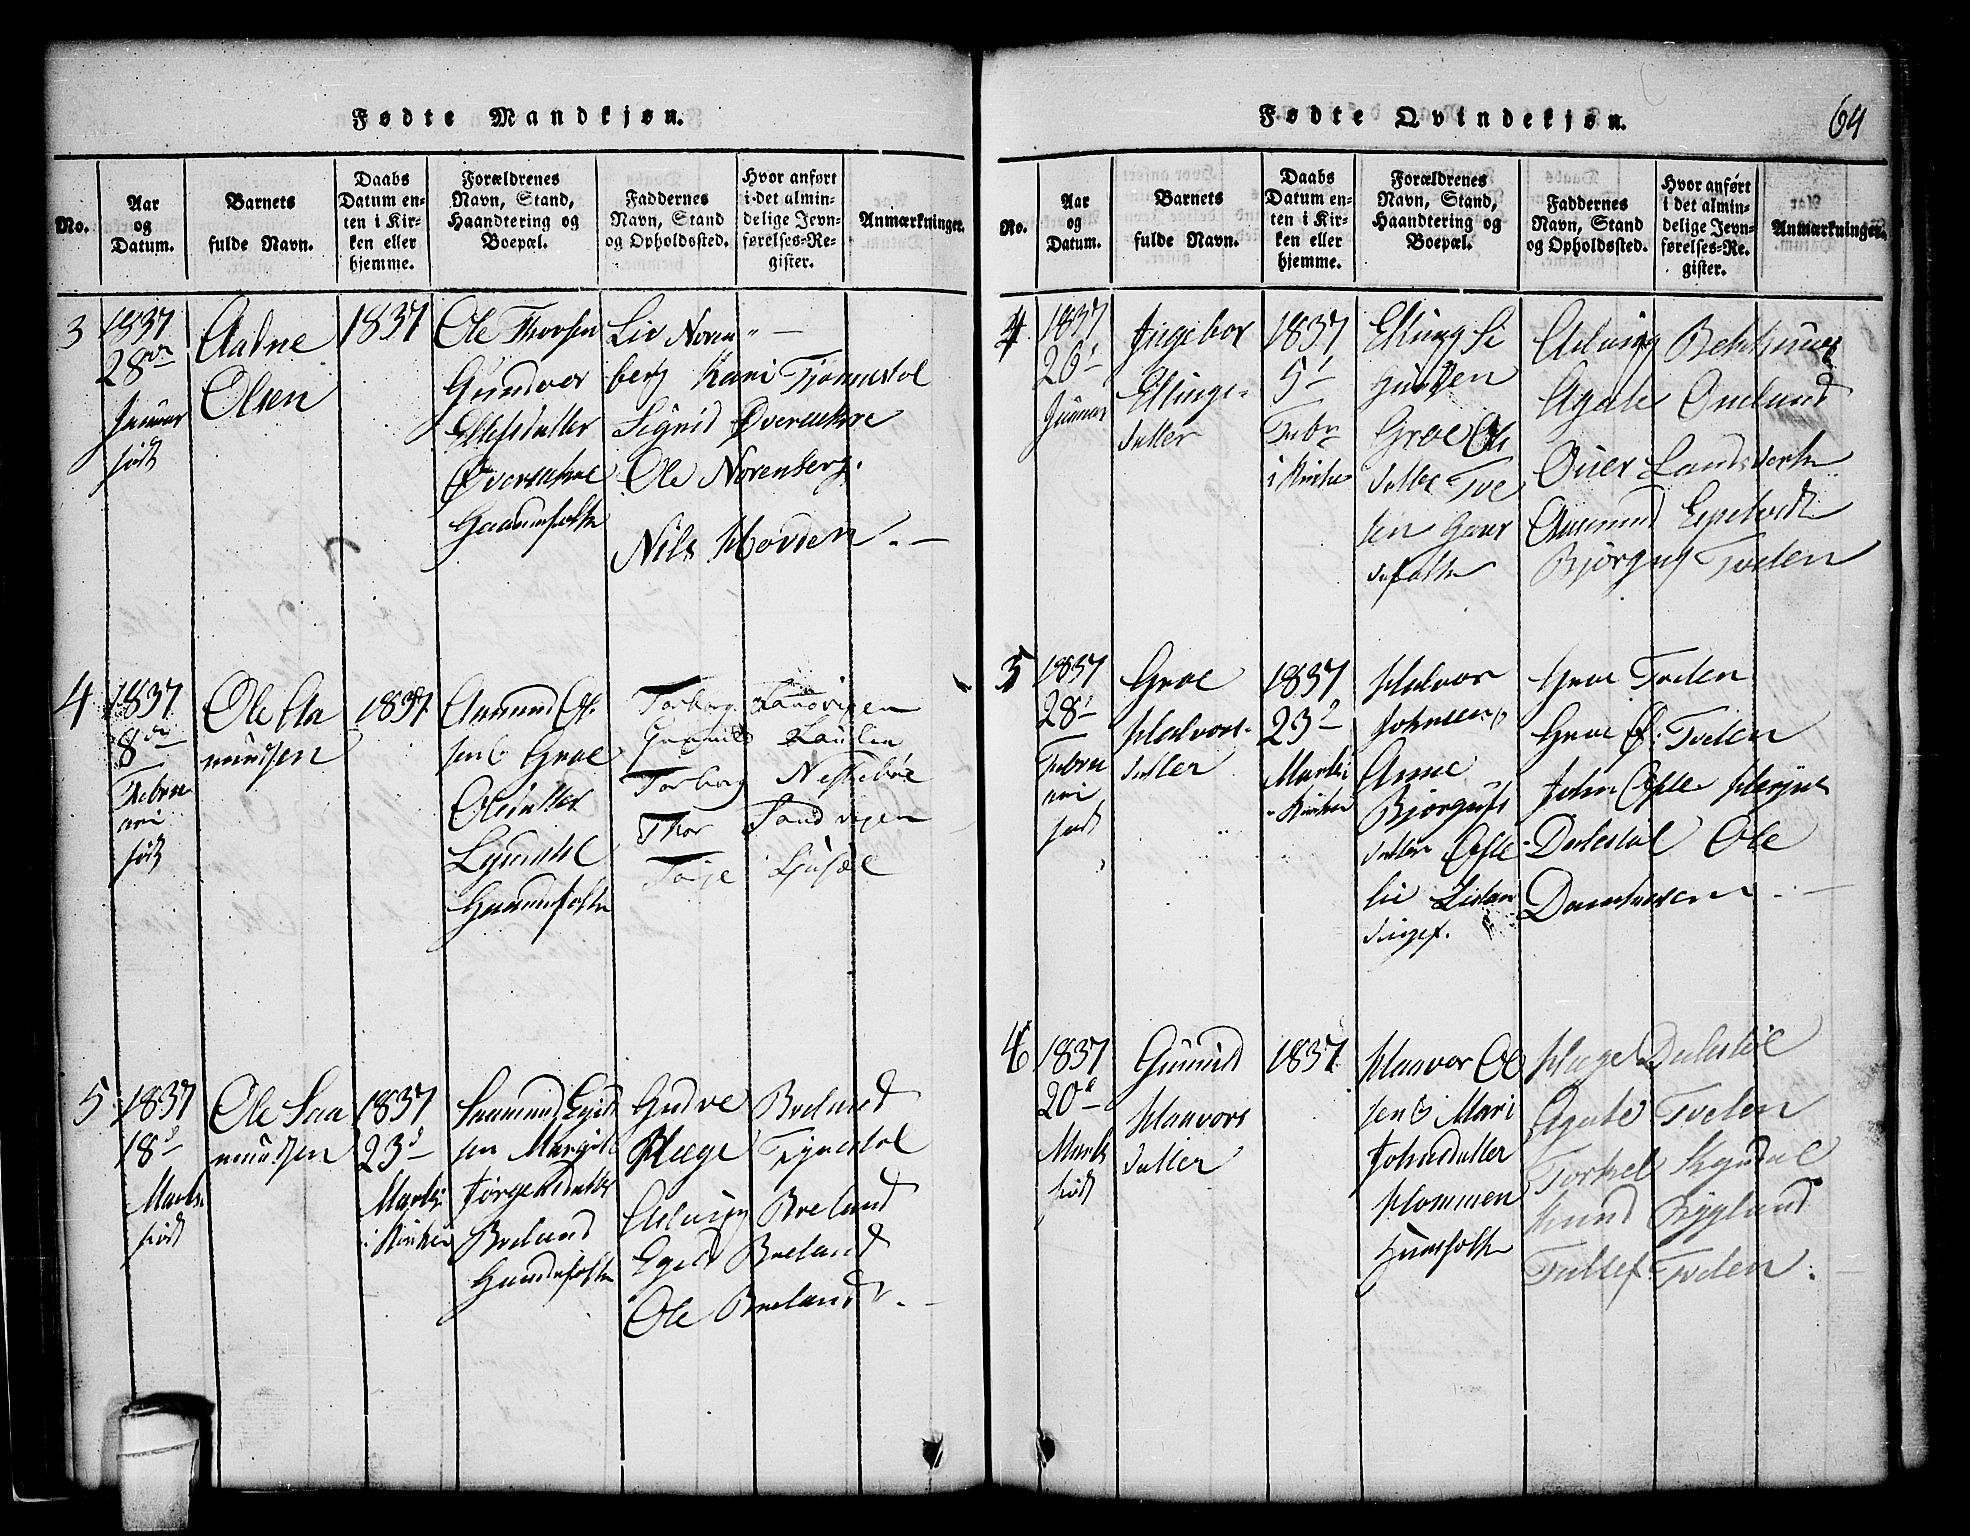 Fødte Mandkjøn.
No.
Aar og Datum.
Barnets fulde Navn.
Daabs Datum enten i Kirken eller hjemme.
Forældrenes Navn, Stand, Haandtering og Boepæl.
Faddernes Navn, Stand og Opholdssted.
Hvor anført i det almindelige Jevnførelses-Register.
Anmærkninger.
3
1837
28de
Januar
født
Aadne
Olsen
1837
Ole Thorsen
Gundvor
Ellefsdatter
Øverenhoe
Gaardmfolk
Liv Noren
berg Kari Tjømstøl
Signid Øverenhoe
Ole Norenberg.
Nils Hovden.
4
1837
8de
Februa
ari
født
Ole Aa
mundsen
1837
Aamund Ol
sen & Groe
Olsdatter
Gaardmfolk
Torborg Landvigen
Gunnild
Torborg Neskebøe
Thor Sandvigen
Torje
5
1837
18d
Marts
født
Ole Saa
mundsen
1837
23d
Marts
i Kirken
Saamund Egids
sen Margit
Jørgensdatter
Breland
Gaardmfolk
Gudve Breland
Hæge
Aslaug Breland
Egeld Breland
Ole Breland.
Fødte Qvindekjøn.
64
No.
Aar og Datum.
Barnets fulde Navn.
Daabs Datum enten i Kirken eller hjemme.
Forældrenes Navn, Stand, Haandtering og Boepæl.
Faddernes Navn, Stand og Opholdssted.
Hvor anført i det almindelige Jevnførelses-Register.
Anmærkninger.
4
1837
26d
Januar
Ingebor
Ellings-
datter
1837
5d
Febr
i Kirke
Elling Si
gursen
Groe Ols
datter Tve
ten Gaar
dsfolk
Aslaug Bekkhuus
Agate Omland
Oner Landsverk
Aasmund Espetvedt
Bjørguf Tveten
5
1837
28d
Febru
ari
født
Groe
Halvors-
datter
1837
23d
Marts i
Kirken
Halvor
Johnsen &
Anne
Bjorgufs
datter Ofte
lie
Groe Tveten
Groe O. Tveten
John Ofte
Dalestøl Ole
6
1837
20d
Marts
født
Gunnild
Haavors
datter
1837
Haavor Ol
sen & Mari
Johnsdatter
Hommen
Huusfolk
Hæge Dalestøl
Agate Tveten
Torkel
Knud Rygland
Tallef Tveten.